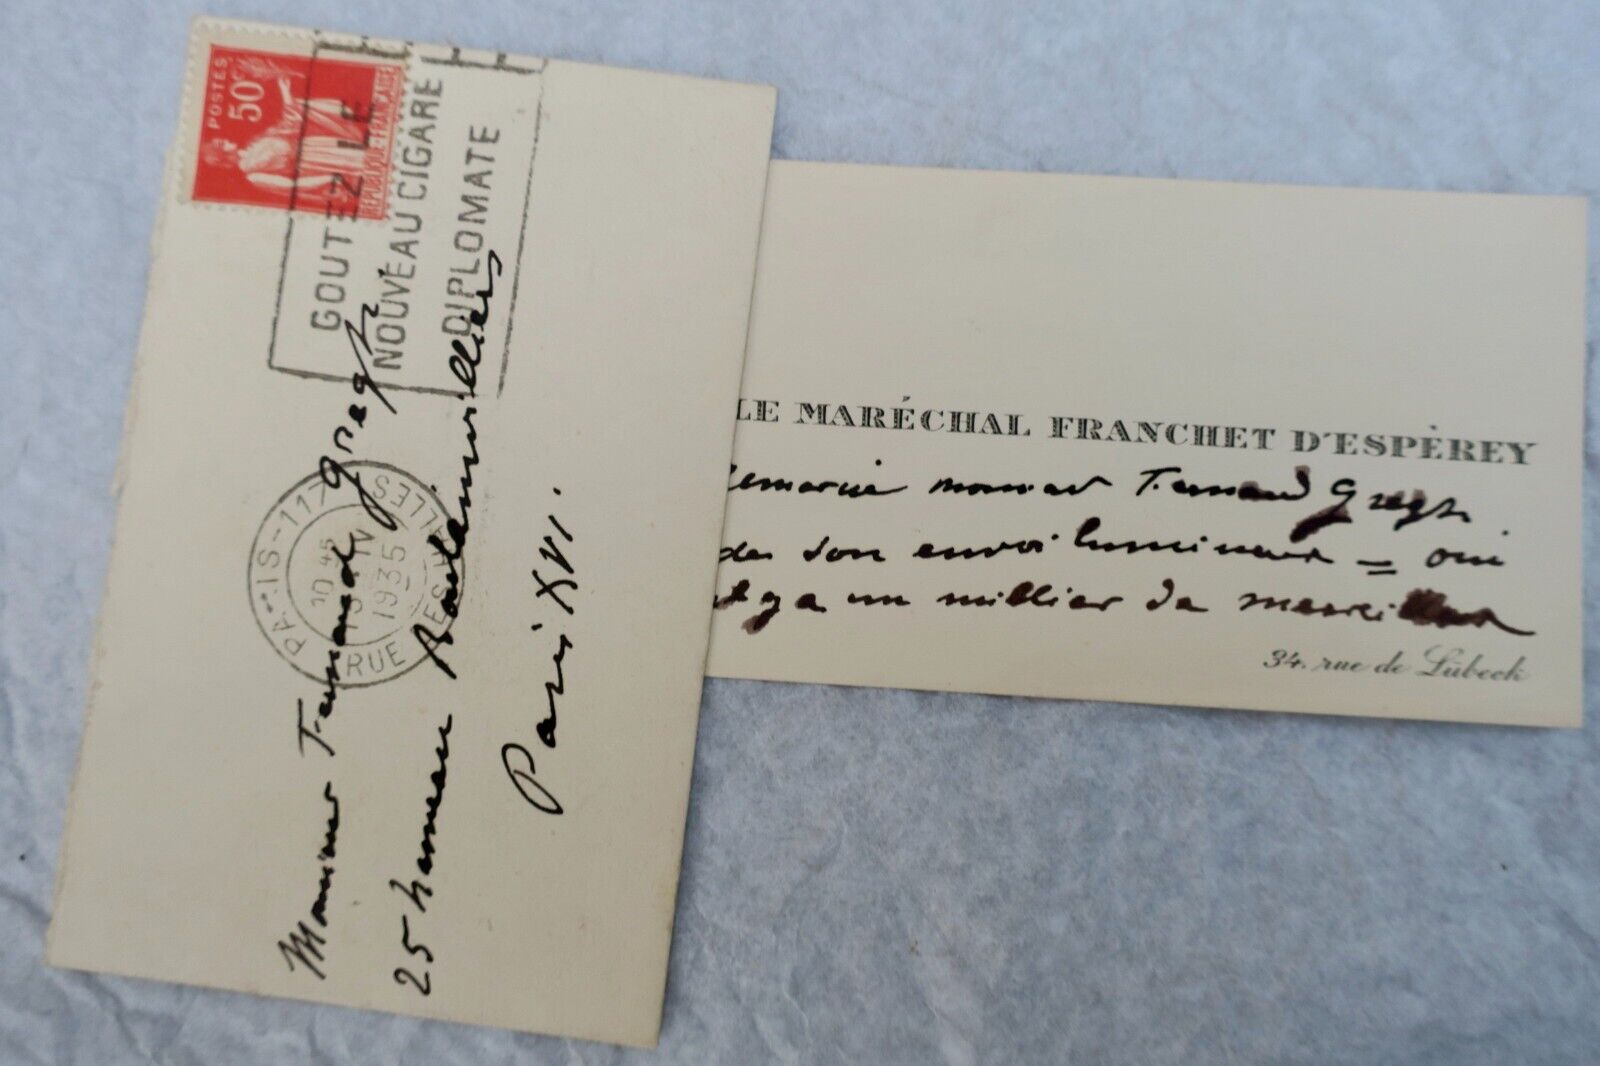 POSTES
50c
REPUBLIQUE FRANÇAISE
GOUTEZ LE
NOUVEAU CIGARE
DIPLOMATE
PARIS-117
10 45
IV
1935
RUE
Monsieur Fernand Gregh
25 hameau Boulainvilliers
Paris XVI.
LE MARÉCHAL FRANCHET D'ESPÈREY
remercie monsieur Fernand Gregh
de son envoi lumineux = oui
il y a un millier de merveilles
34. rue de Lübeck